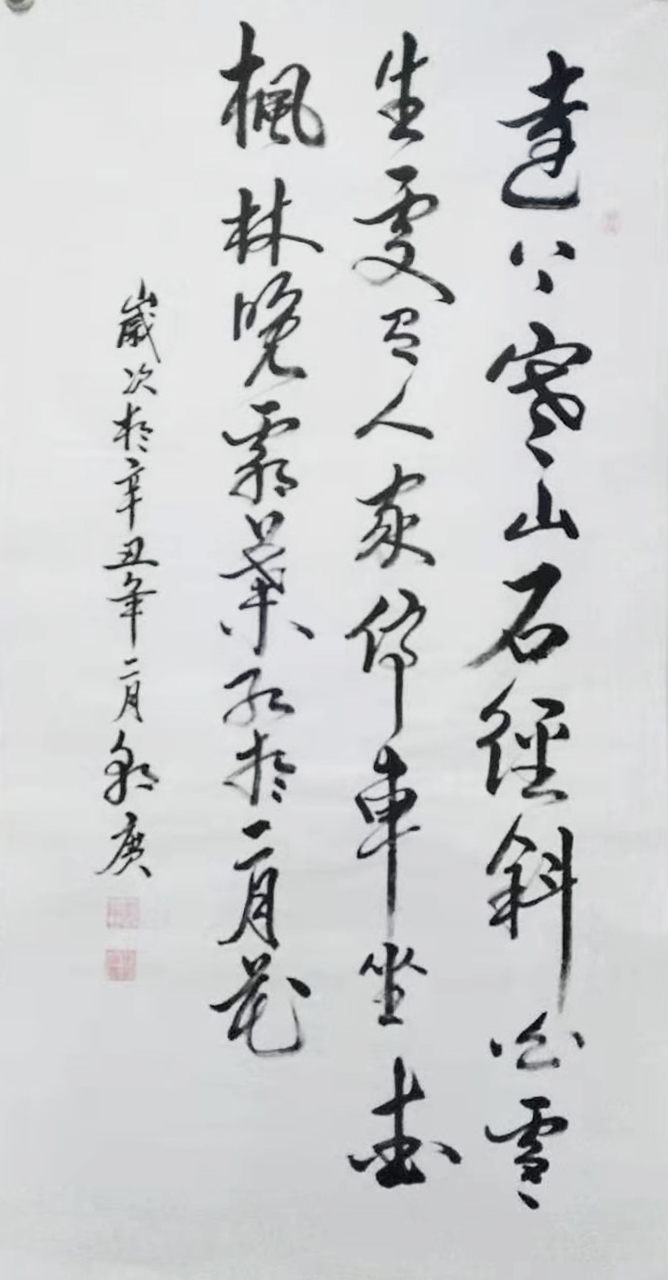 遠上寒山石徑斜白雲
生處有人家停車坐愛
楓林晚霜葉紅於二月花
歲次於辛丑年二月廣